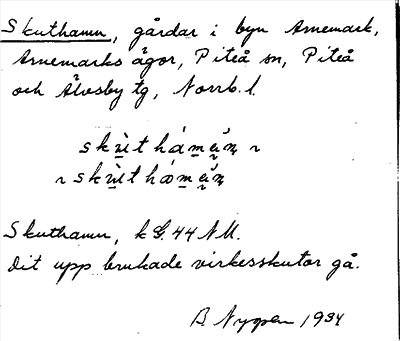 Skuthamn, gårdar i byn Arnemark,
Arnemarks ägor, Piteå sn, Piteå
och Älvsby tg, Norrb. l.
Skuthamn, k G. 44 NM.
Dit upp brukade virkesskutor gå.
B Nygren 1934